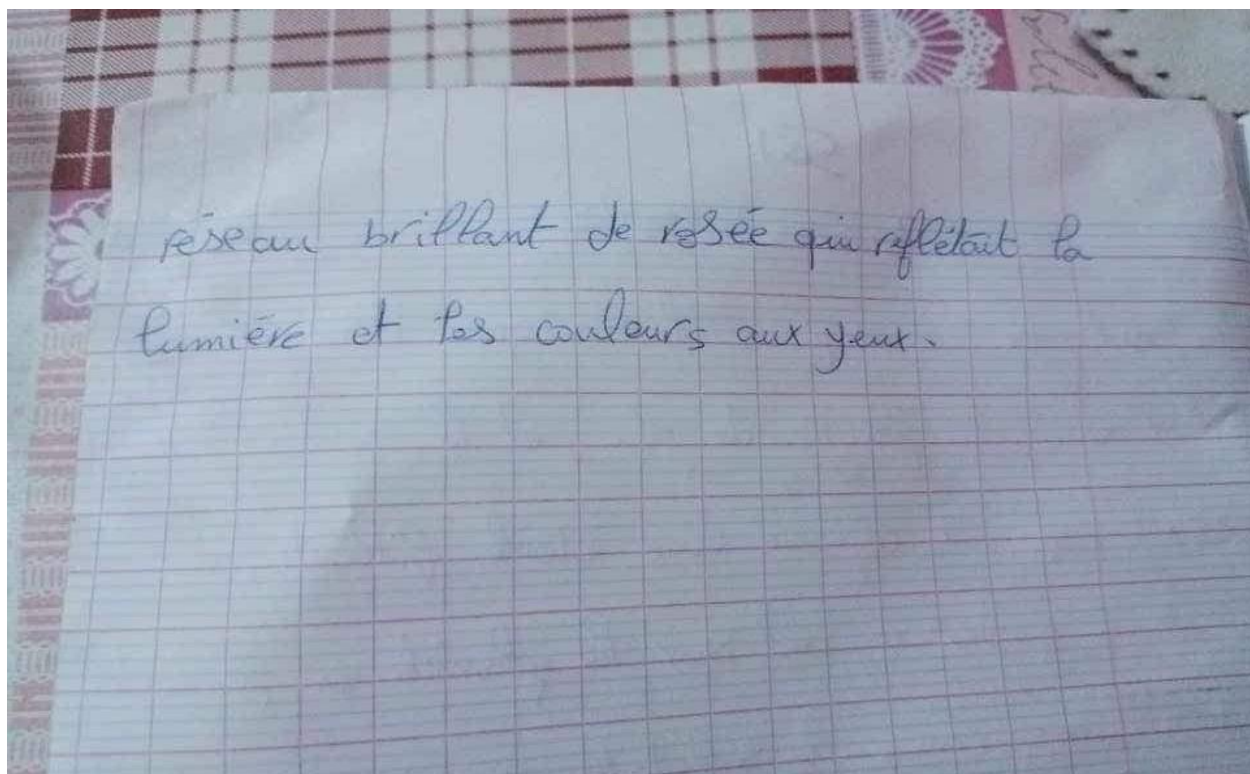 réseau brillant de rosée qui reflétait la
lumière et les couleurs aux yeux.